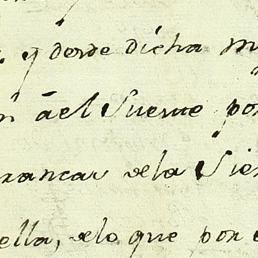 y desde dicha
á el Fuerte por
rancar de la Sie
ella, de lo que por